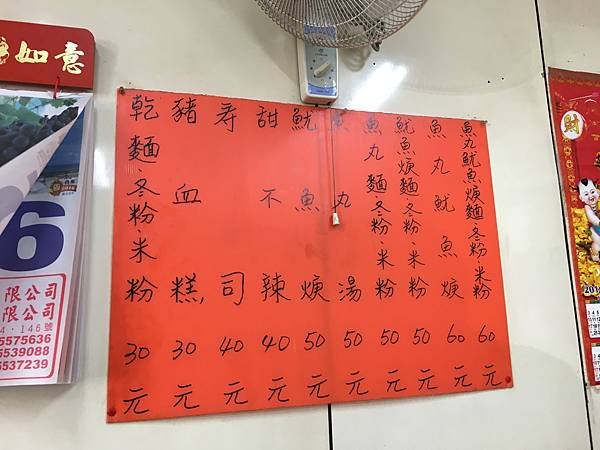 如意
6
限公司
限公司
4·146號
5575636
5539088
5537239
乾麵·冬粉·米粉30元
豬血糕30元
寿司40元
甜不辣40元
魷魚焿50元
魚丸湯50元
魚丸麵·冬粉·米粉50元
魷魚焿麵·冬粉·米粉50元
魚丸魷魚焿60元
魚丸魷魚焿麵·冬粉·米粉60元
財
201